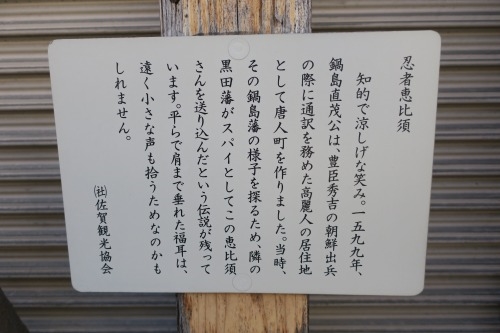 忍者恵比須
知的で涼しげな笑み。一五九九年、
鍋島直茂公は、豊臣秀吉の朝鮮出兵
の際に通訳を務めた高麗人の居住地
として唐人町を作りました。当時、
その鍋島藩の様子を探るため、隣の
黒田藩がスパイとしてこの恵比須
さんを送り込んだという伝説が残って
います。平らで肩まで垂れた福耳は、
遠く小さな声も拾うためなのかも
しれません。
㈳佐賀観光協会